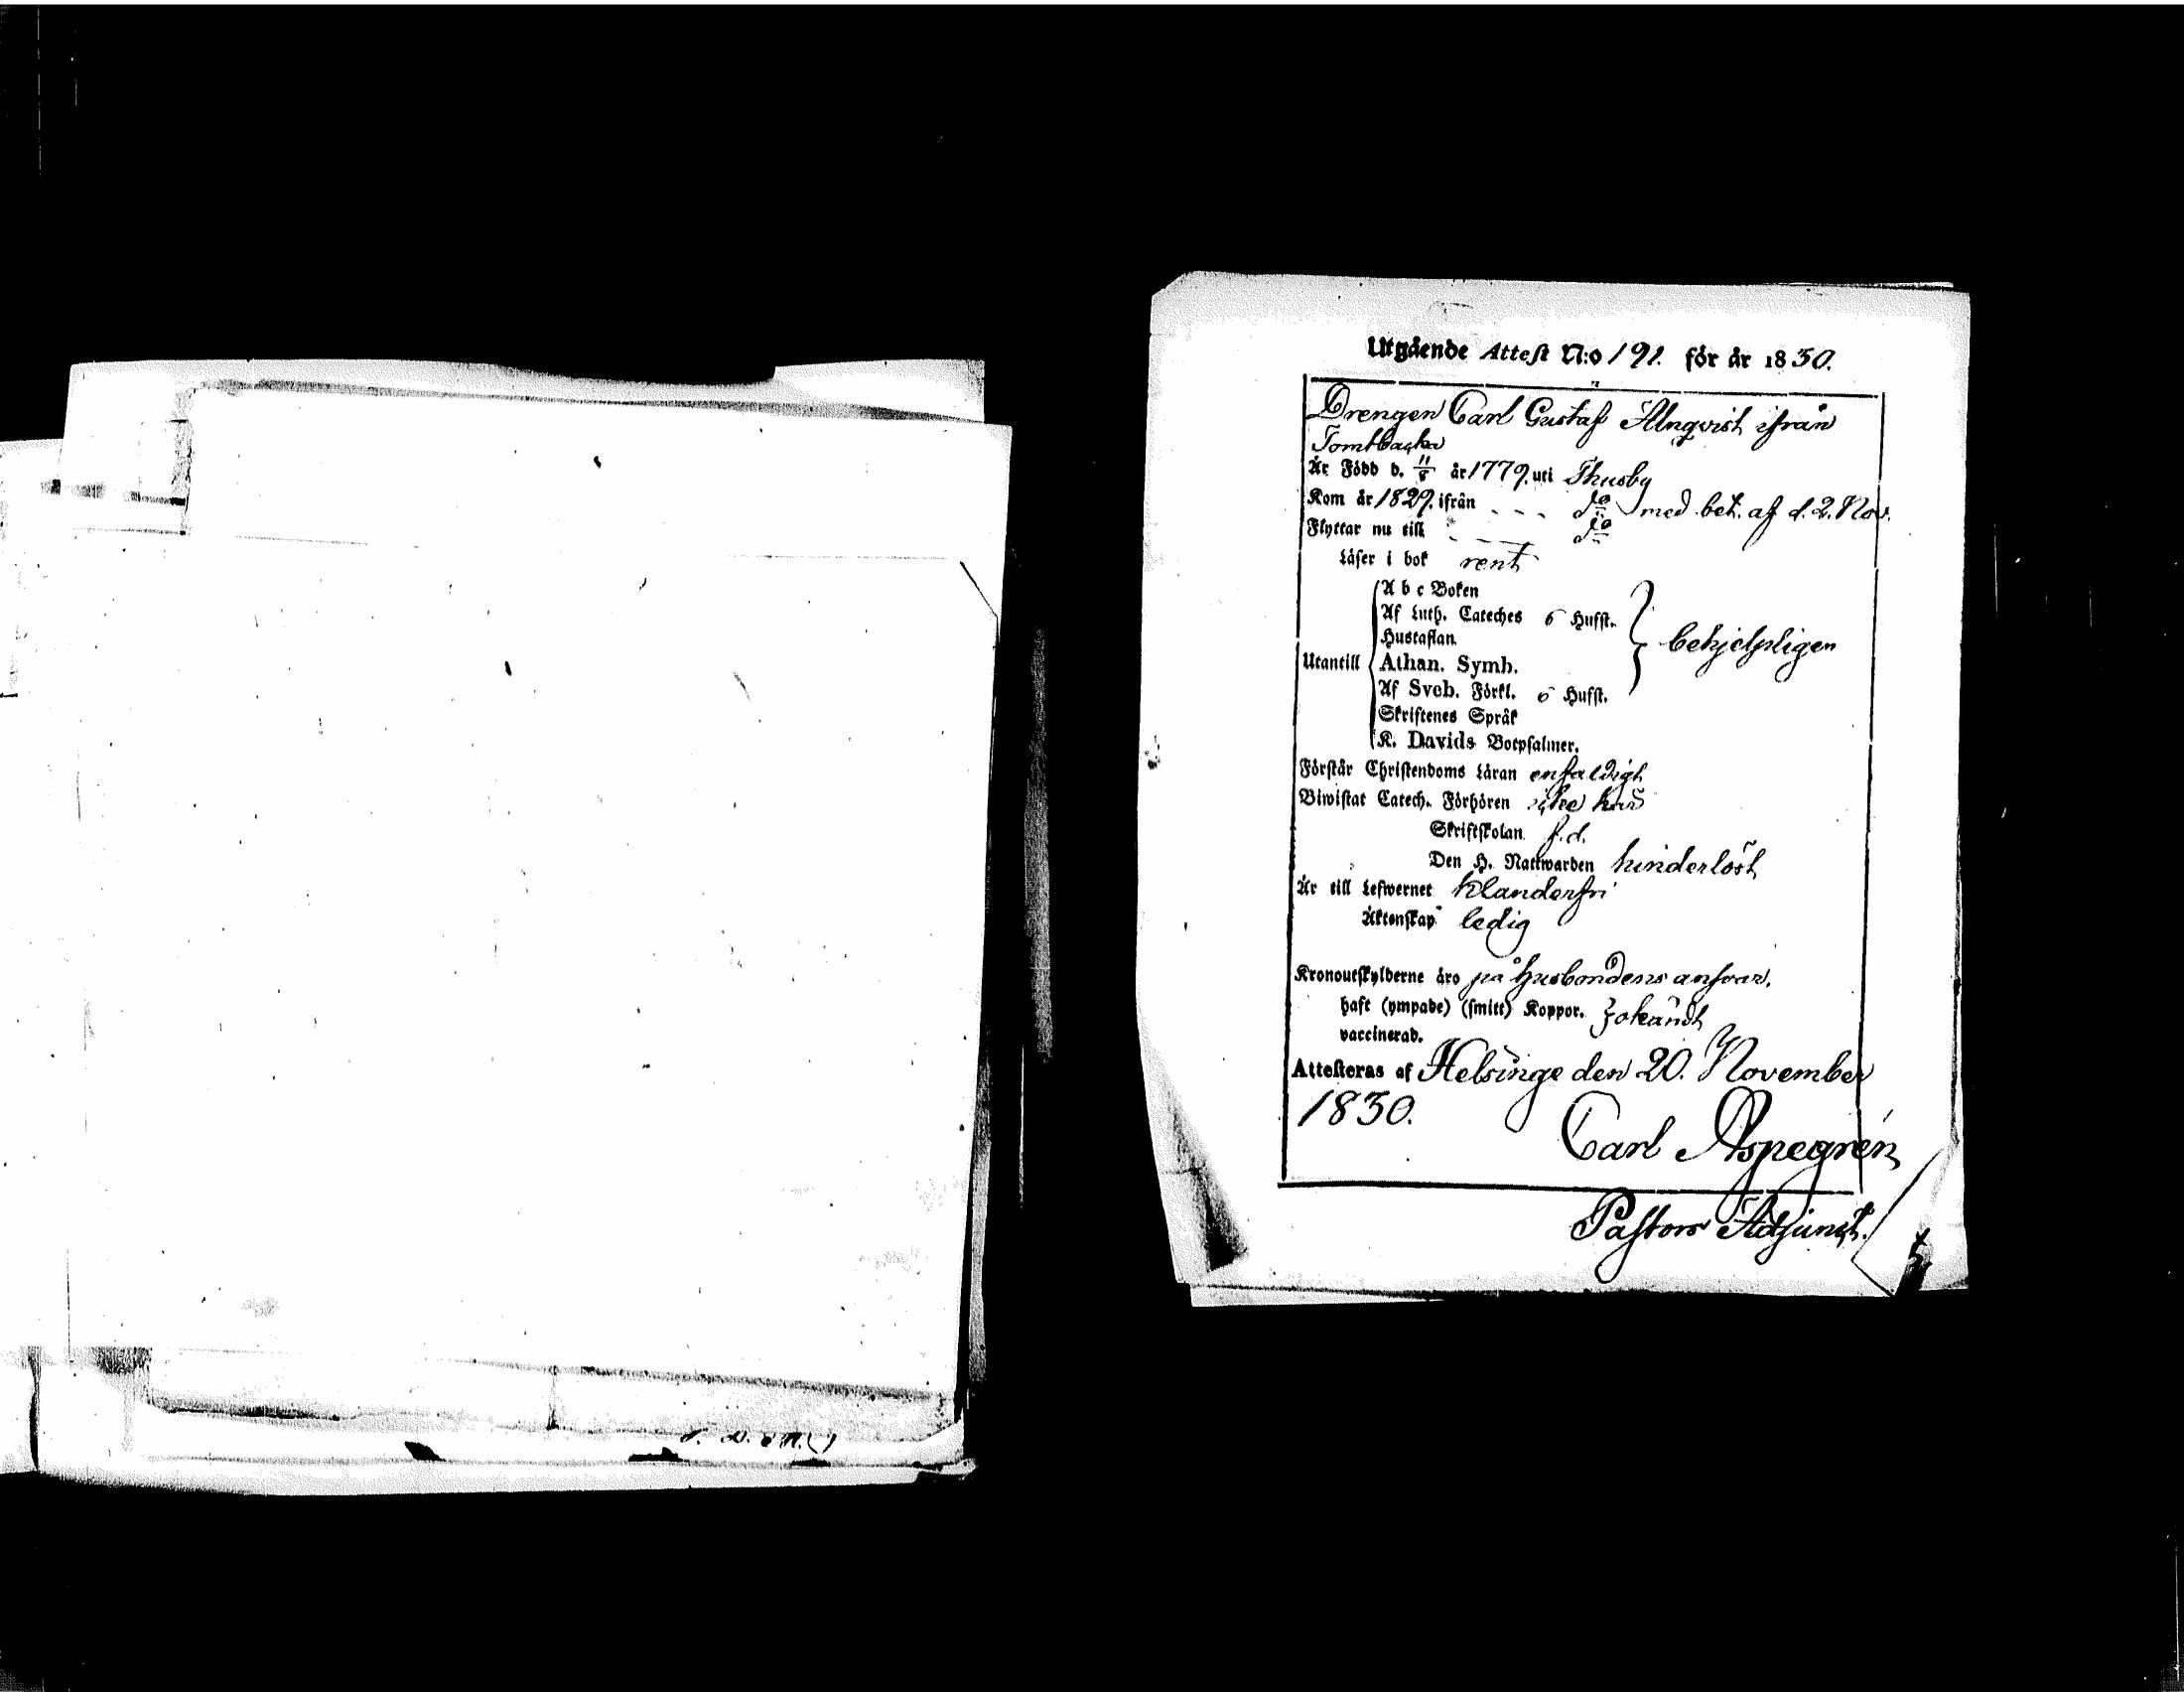 Utgående Attest N:o 191. för år 1830.
Drengen Carl Gustaf Almqvist ifrån
Tomtbacka
Är Född d. 11/8 år 1779. uti Thusby
Kom år 1829. ifrån - - - do med bet. af d. 2. Nov.
Flyttar nu till - - - do
Läser i bok rent
A b c Boken
Af Luth. Cateches 6 Hufst.
Hustaflan
behjelpligen
Utantill Athan. Symb.
Af Sveb. Förkl. 6 Hufst.
Skriftenes Språk
K. Davids Botpsalmer.
Förstår Christendoms Läran enfaldigt
Biwistat Catech. Förhören icke här
Skriftskolan f.d.
Den H. Nattwarden hinderlöst
Är till Lefwernet klanderfri
Äktenskap ledig
Kronoutskylderne äro på Husbondens ansvar.
haft (ympade) (smitt) Koppor. } okändt
vaccinerad.
Attesteras af Helsinge den 20. November
1830.
Carl Aspegrén
Pastors Adjunct.